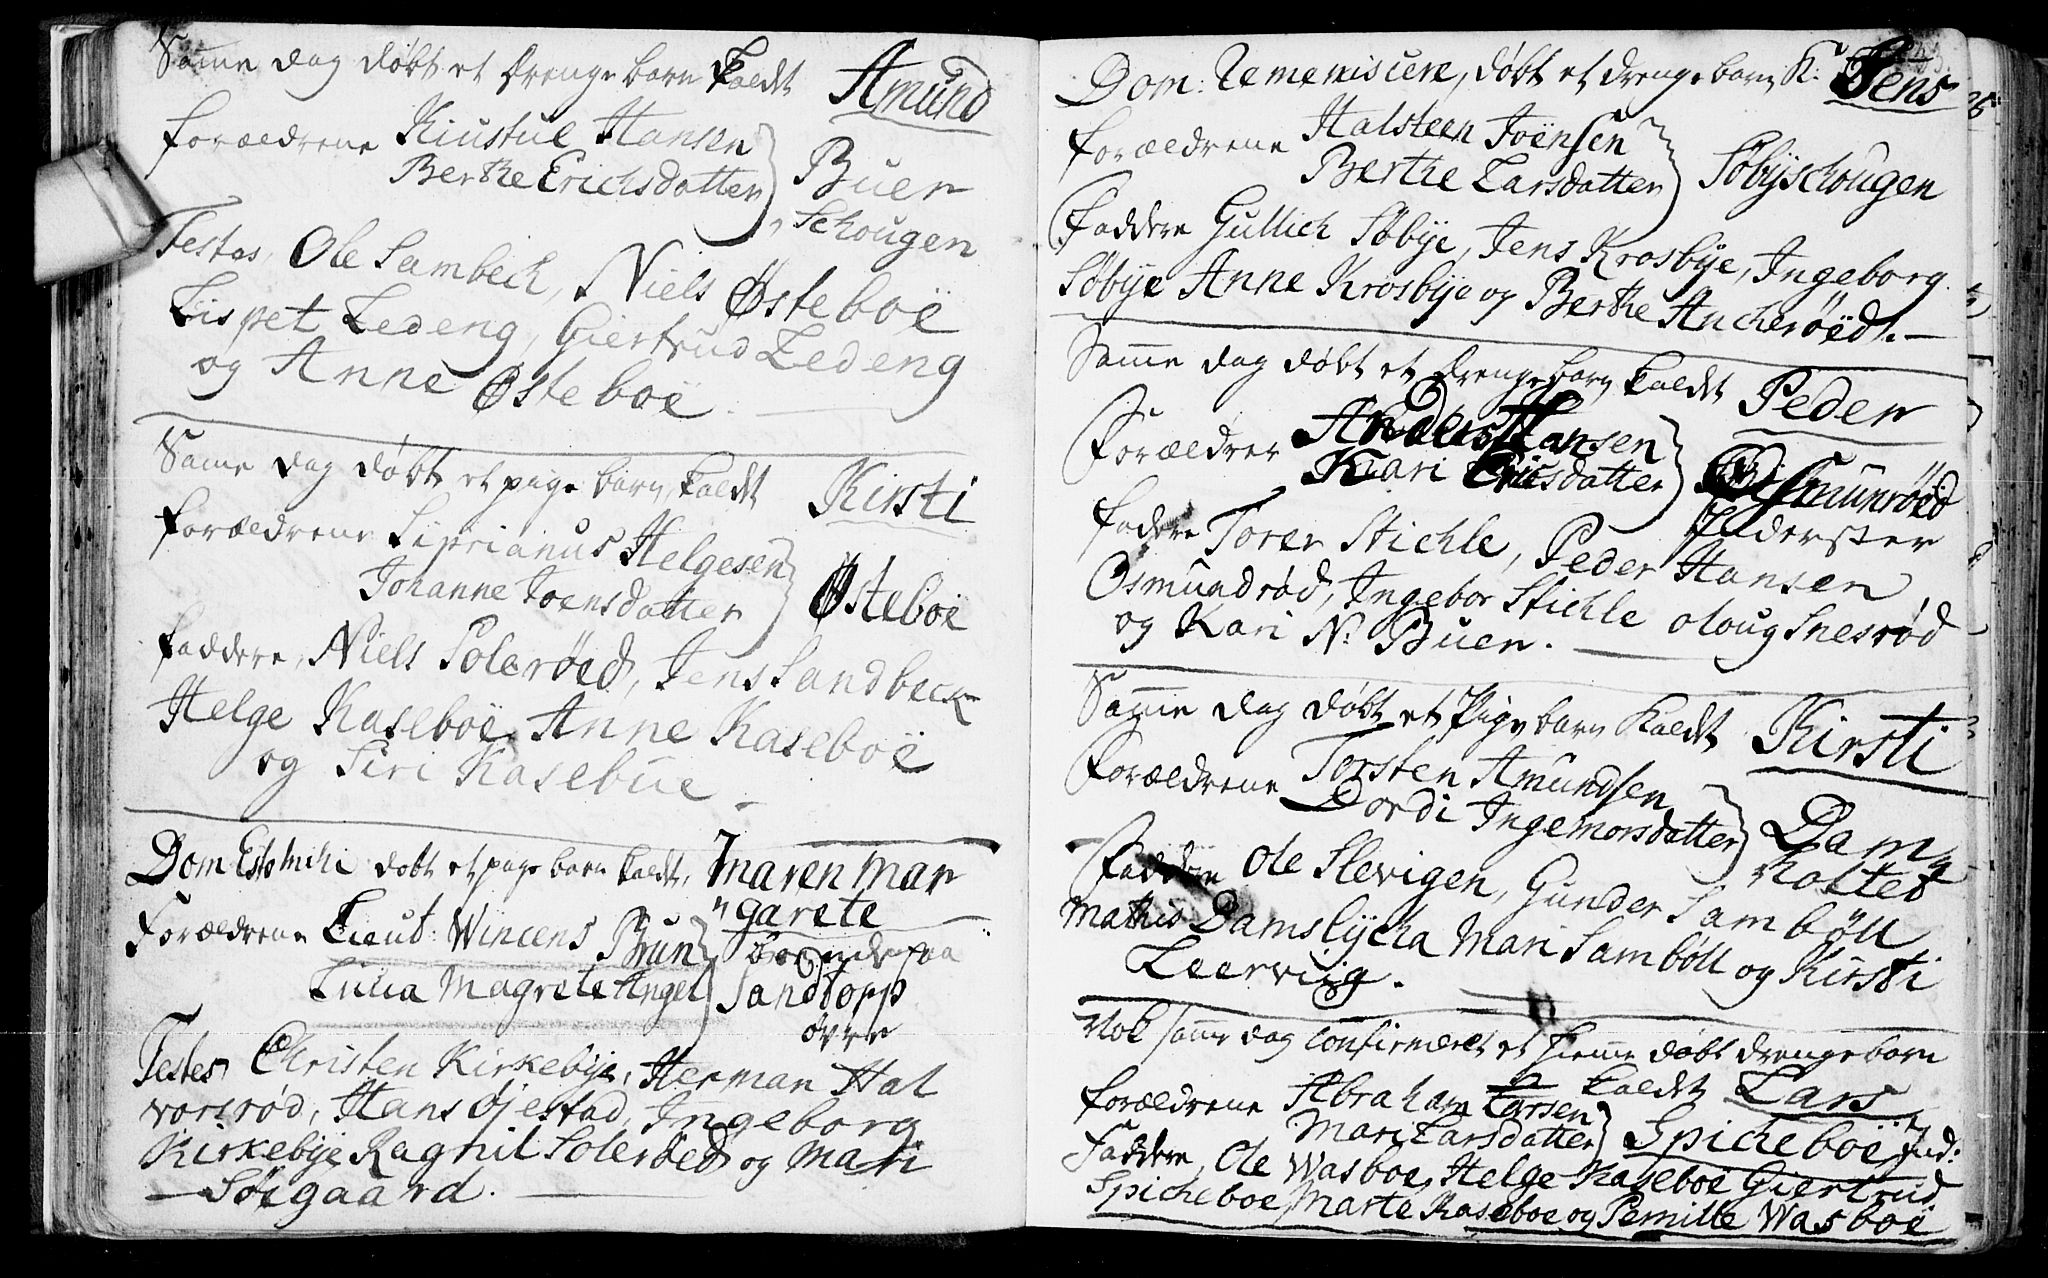 Samme dag døbt et drenge barn kaldt Amund
forældrene Kiustul Hansen Buer
Berthe Erichsdatter Schougen
Testes, Ole Sambech, Niels Østeboe
Lispet Ledeng, Giertrud Ledeng
og Anne Østeboe.
Samme dag døbt et pige barn kaldt Kirsti
forældrene Siprianus Helgesen
Johanne Joensdatter Østeboe
faddere, Niels Solerøed, Jens Sandbeck
Helge Kaseboe, Anne Kaseboe
og Siri Kasebue.
Dom Estomihi døbt et pige barn kaldt, Maren Mar
garete
Forældrene Lieut: Wincens Brun boende paa
Lucia Magrete Angel Sandtopp
øvre
Testes Christen Kirkebye, Herman Hal
vorsrød, Hans Øjestad, Ingeborg
Kirkebye Ragnil Solerøed og Mari
Søegaard.
Dom: Reminiscere, døbt et drenge barn K: Jens
forældrene Halsteen Joensen
Berthe Larsdatter Søbyschougen
Faddere Gullich Søbye, Jens Krosbye, Ingeborg
Søbye Anne Krosbye og Berthe Ancherøed.
Samme dag døbt et drenge barn kaldt Peder
Forældrer Anders Hansen
Kari Ericsdatter Osmunrød
fadere Torer Stichle, Peder Hansen
Osmundrød, Ingebor Stichle oloug Snesrød
og Kari N: Buen.
Samme dag døbt et Pige barn kaldt Kirsti
Forældrene Torsten Amundsen
Dordi Ingemorsdatter Dam
holtet
Faddere Ole Slevigen, Gunder Sambøll
Mathis Damslycka Mari Sambøll og Kirsti
Leerviig.
Nok samme dag confirmeret et hiemme døbt drengebarn
kaldt Lars
forældrene Abraham Larsen
Mari Larsdatter Spicheboe Ind:
Faddere, Ole Wasboe, Helge Kaseboe Giertrud
Spicheboe Marte Kaseboe og Pernille Wasboe